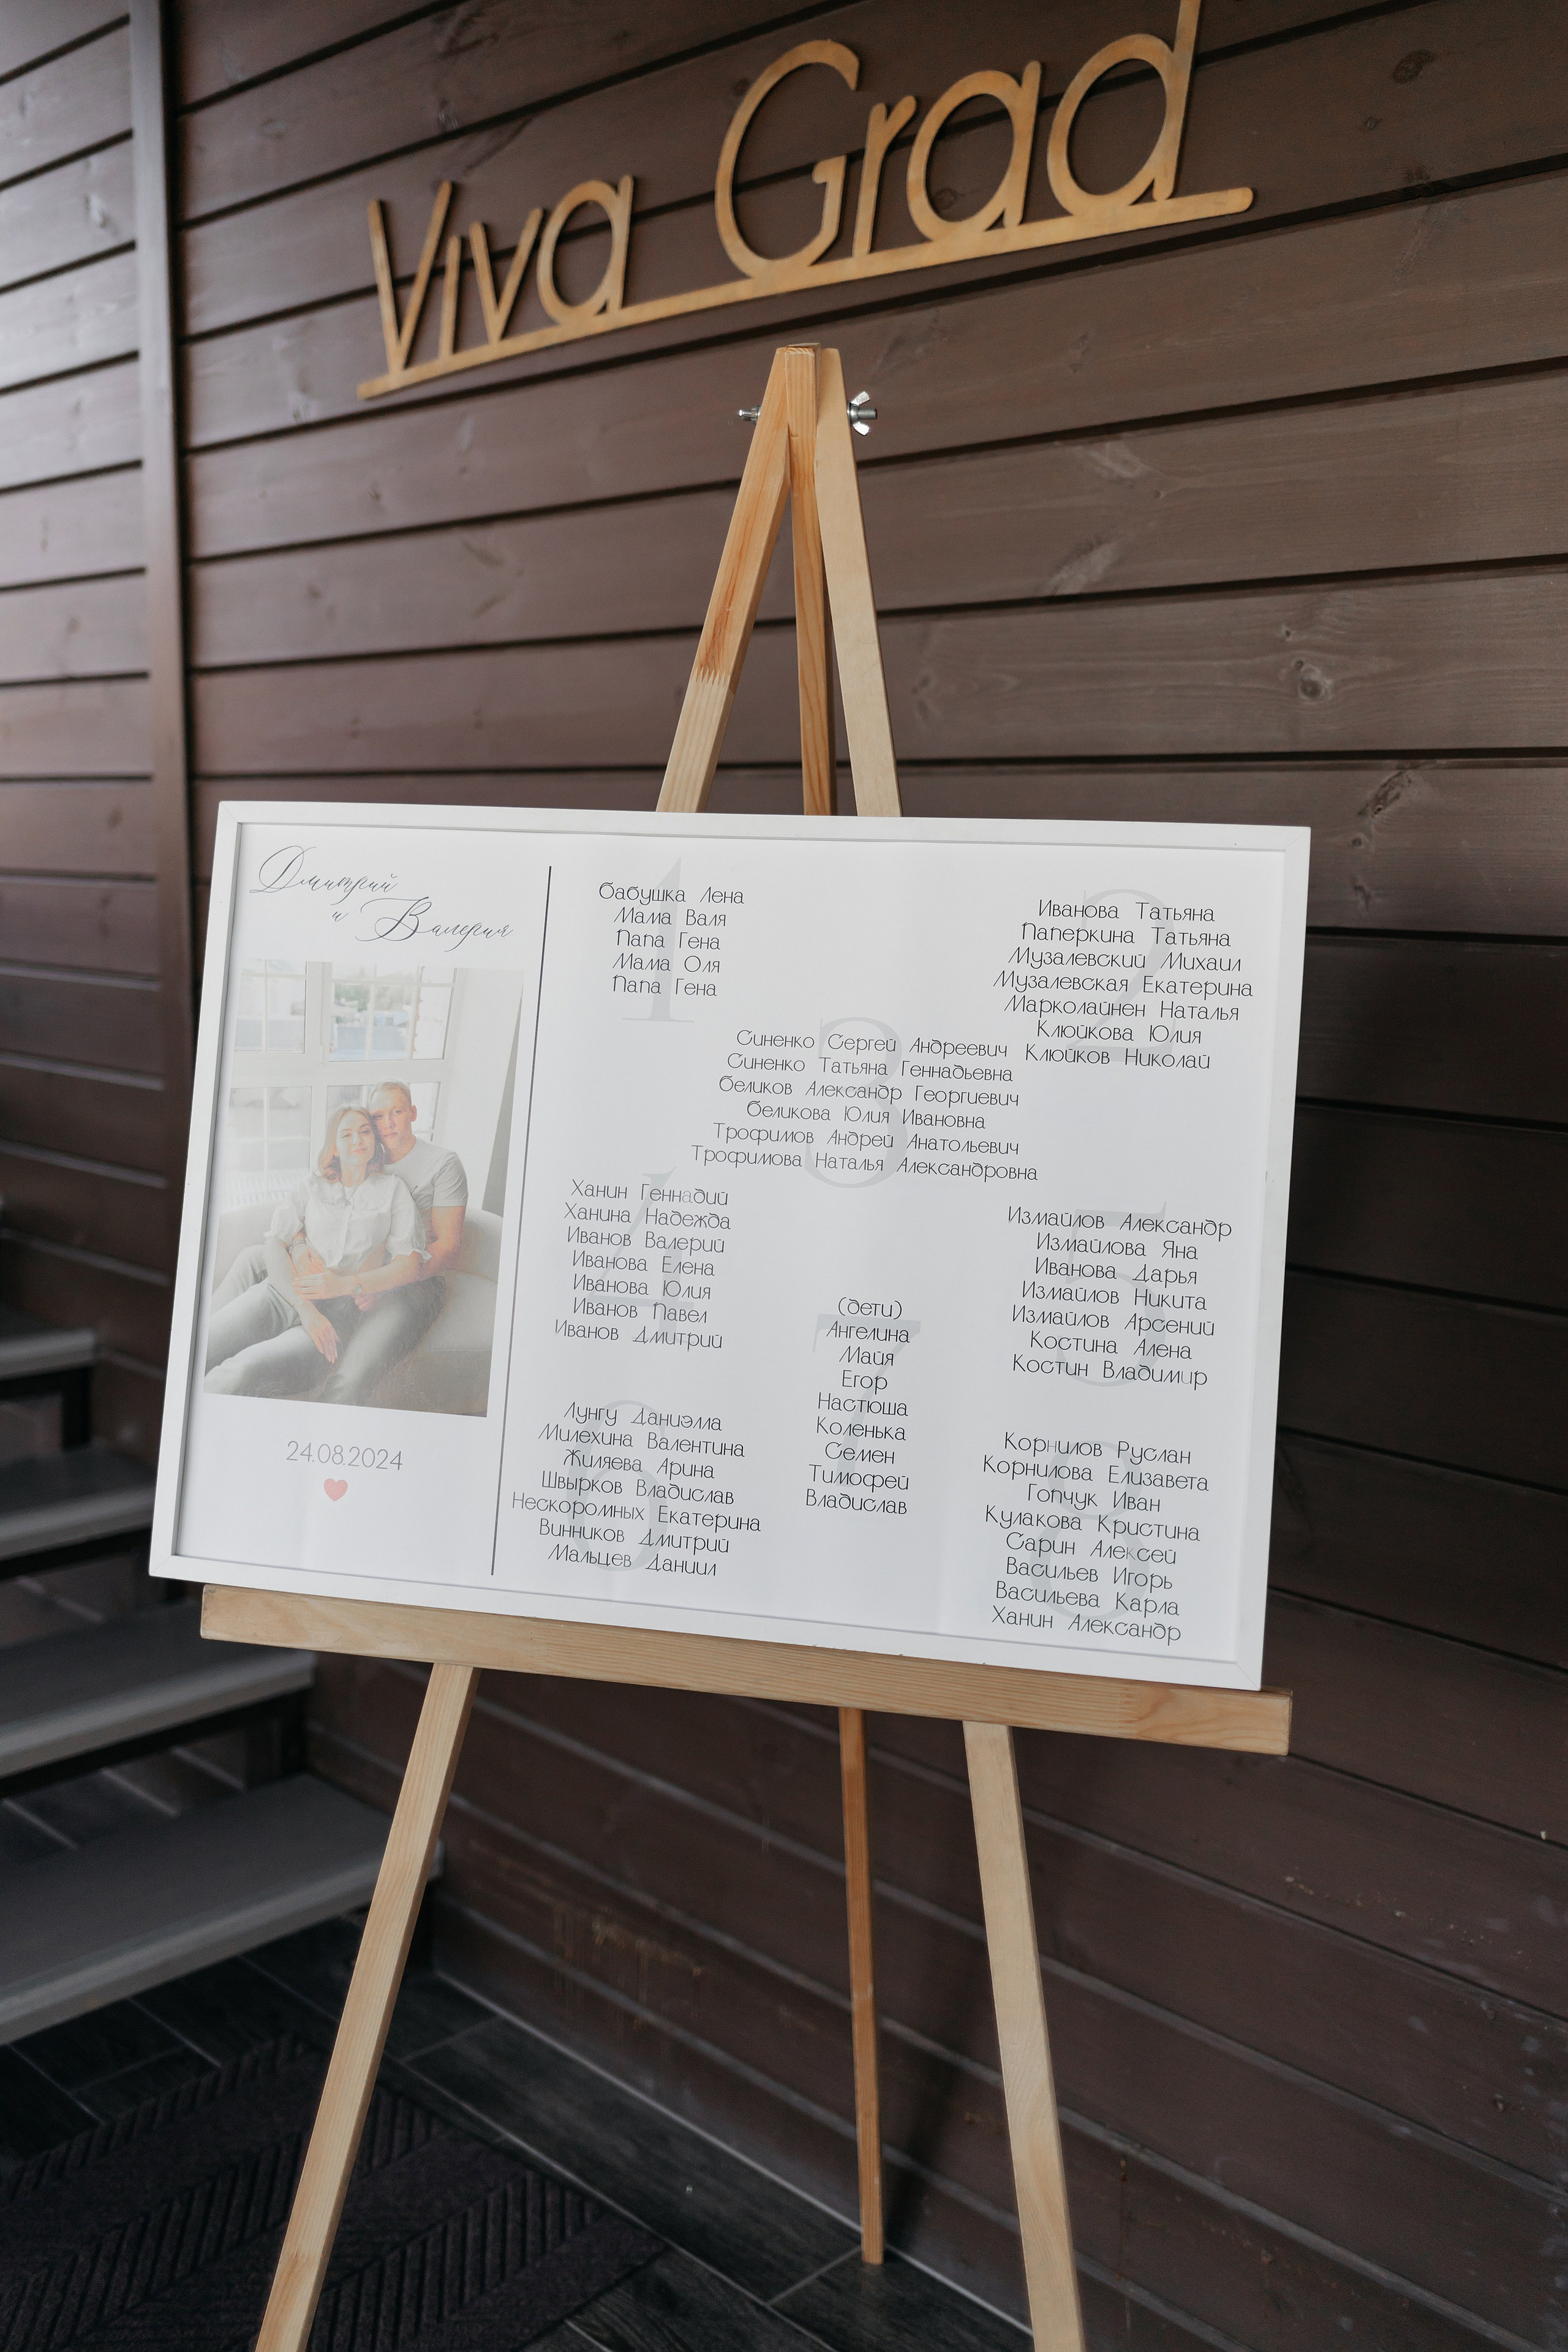 Viva Grad
Дмитрий
и Валерия
24.08.2024
1
бабушка Лена
Мама Валя
Папа Гена
Мама Оля
Папа Гена
2
Иванова Татьяна
Паперкина Татьяна
Музалевский Михаил
Музалевская Екатерина
Марколайнен Наталья
Клюйкова Юлия
Клюйков Николай
3
Синенко Сергей Андреевич
Синенко Татьяна Геннадьевна
беликов Александр Георгиевич
беликова Юлия Ивановна
Трофимов Андрей Анатольевич
Трофимова Наталья Александровна
4
Ханин Геннадий
Ханина Надежда
Иванов Валерий
Иванова Елена
Иванова Юлия
Иванов Павел
Иванов Дмитрий
5
Измайлов Александр
Измайлова Яна
Иванова Дарья
Измайлов Никита
Измайлов Арсений
Костина Алена
Костин Владимир
6
Лунгу Даниэлла
Милехина Валентина
Жиляева Арина
Швырков Владислав
Нескоромных Екатерина
Винников Дмитрий
Мальцев Даниил
7
(дети)
Ангелина
Майя
Егор
Настюша
Коленька
Семен
Тимофей
Владислав
8
Корнилов Руслан
Корнилова Елизавета
Гопчук Иван
Кулакова Кристина
Сарин Алексей
Васильев Игорь
Васильева Карла
Ханин Александр